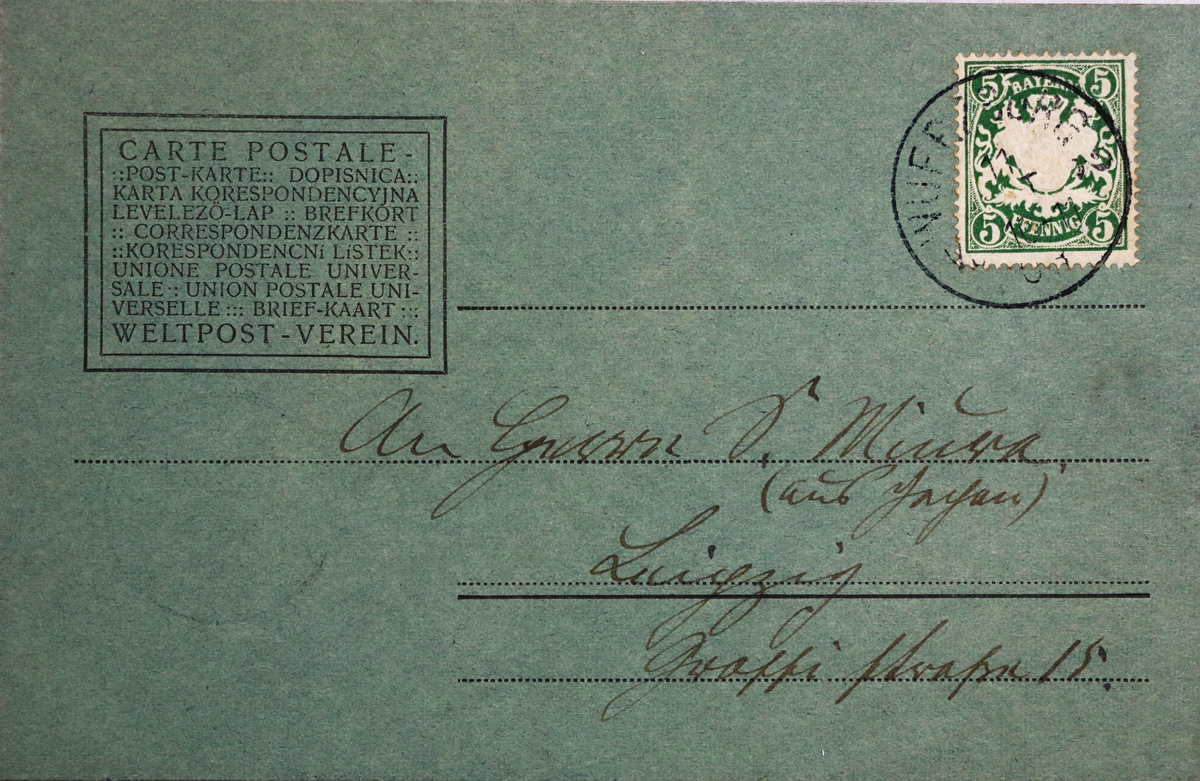 CARTE POSTALE-
::POST-KARTE:: DOPISNICA::
KARTA KORESPONDENCYJNA
LEVELEZŐ-LAP :: BREFKORT
:: CORRESPONDENZKARTE ::
::KORESPONDENCNÍ LÍSTEK::
UNIONE POSTALE UNIVER-
SALE :: UNION POSTALE UNI-
VERSELLE ::: BRIEF-KAART :::
WELTPOST-VEREIN.
5 BAYERN 5
5 PFENNIG 5
An Herrn S. Miura
(aus Japan)
Leipzig
straße 15.